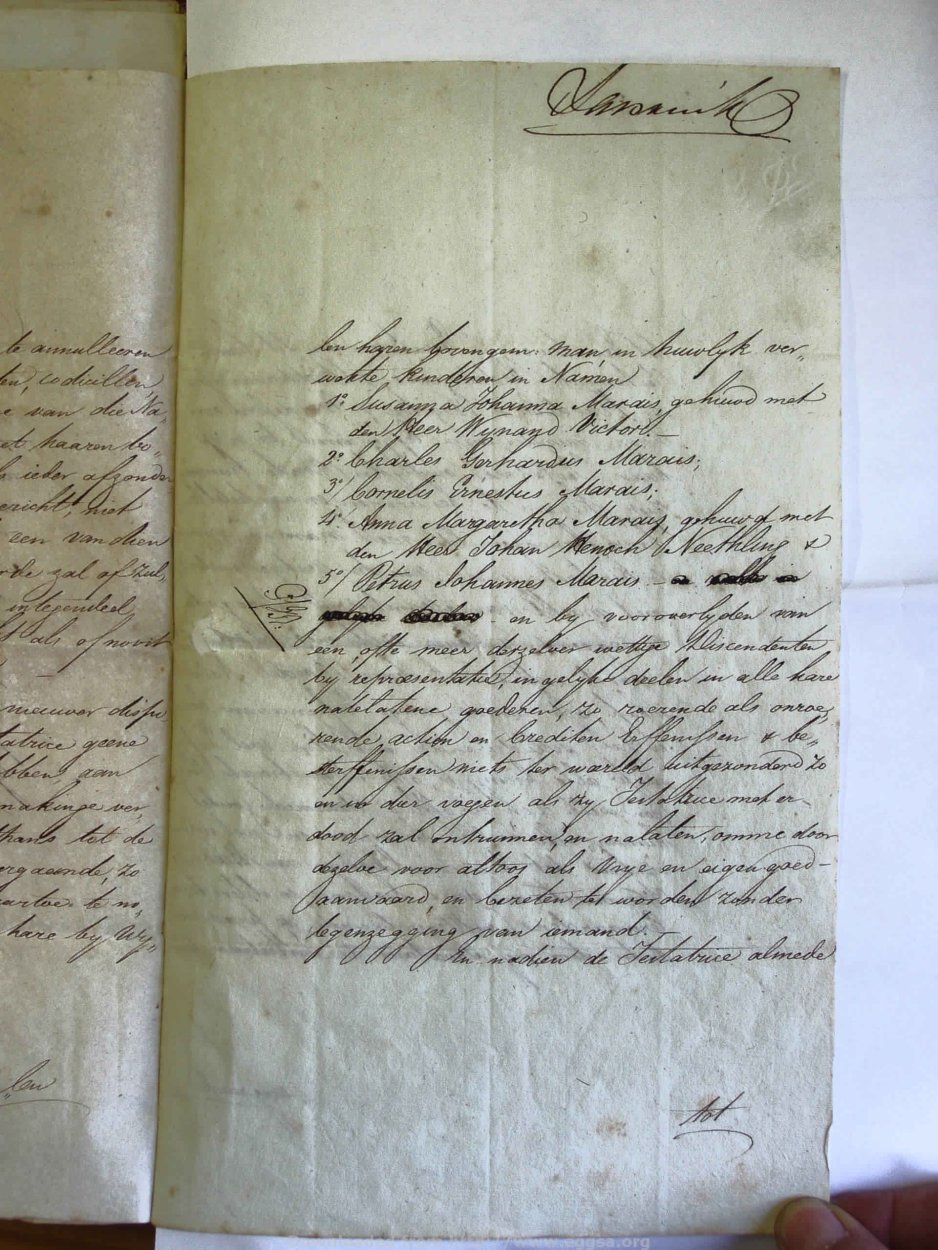 te annulleeren
ten, codicillen,
e van die Na-
et haaren bo-
b ieder afzonder
gericht, niet
een van dien
rde zal of zul,
integendeel,
als of nooit
nieuwer dispo
tatrice geene
bben aan
makinge ver,
thans tot de
ergaende, zo
te no,
hare by Wy,,
„len
len haren bovengem: man in huwlijk ver,,
wekte kinderen in Namen
1º Susanna Johanna Marais, gehuwd met
den Heer Wynand Victor. —
2º Charles Gerhardus Marais;
3º/ Cornelis Ernestus Marais;
4º Anna Margaretha Marais, gehuwd met
den Heer Johan Henoch Neethling &
5º/ Petrus Johannes Marais —
en by vooroverlyden van
een ofte meer derzelver wettige Discendenten
by repræsentatie, in gelyke deelen in alle hare
natelatene goederen, zo roerende als onroe,
rende actien en Crediten Erffenissen & be,,
sterffenissen niets ter wæreld uitgezonderd zo
en in dier voegen als zy Testatrice met er
dood zal ontruimen, en nalaten, omme door
dezelve voor altoos als vrye en eigen goed
aanvaard, en bezeten te worden zonder
tegenzegging van iemand.
En nadien de Testatrice almede
tot
www.eggsa.org